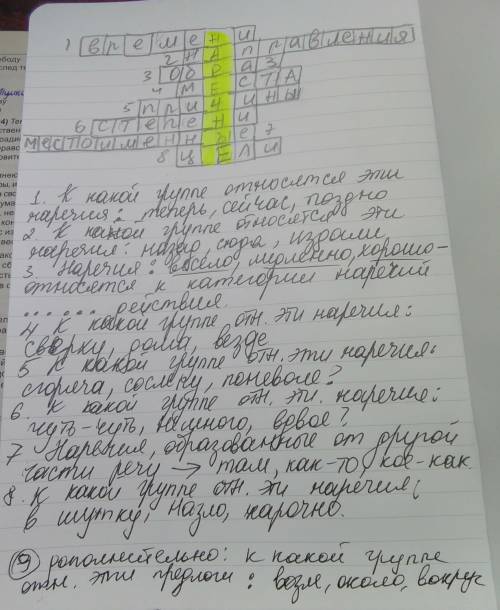 1 времени
2 направления
3 образ
4 места
5 причины
6 степени
местоименные 7
8 цели
1. К какой группе относятся эти
наречия: теперь, сейчас, поздно
2. К какой группе тносятся эти
наречия: назад, сюда, издали
3 Наречия: весело, медленно, хорошо-
относятся к категории наречий
... ... действия.
4 К какой группе отн. эти наречия:
сверху, дома, везде
5 К какой группе отн. эти наречия:
сгоряча, сослепу, поневоле?
6. К какой группе отн. эти наречия:
чуть-чуть, немного, вдвое?
7 Наречия, образованные от другой
части речи → там, как-то, кое-как.
8. К какой группе отн. эти наречия:
в шутку, назло, нарочно.
9 дополнительно: к какой группе
отн. эти предлоги: возле, около, вокруг